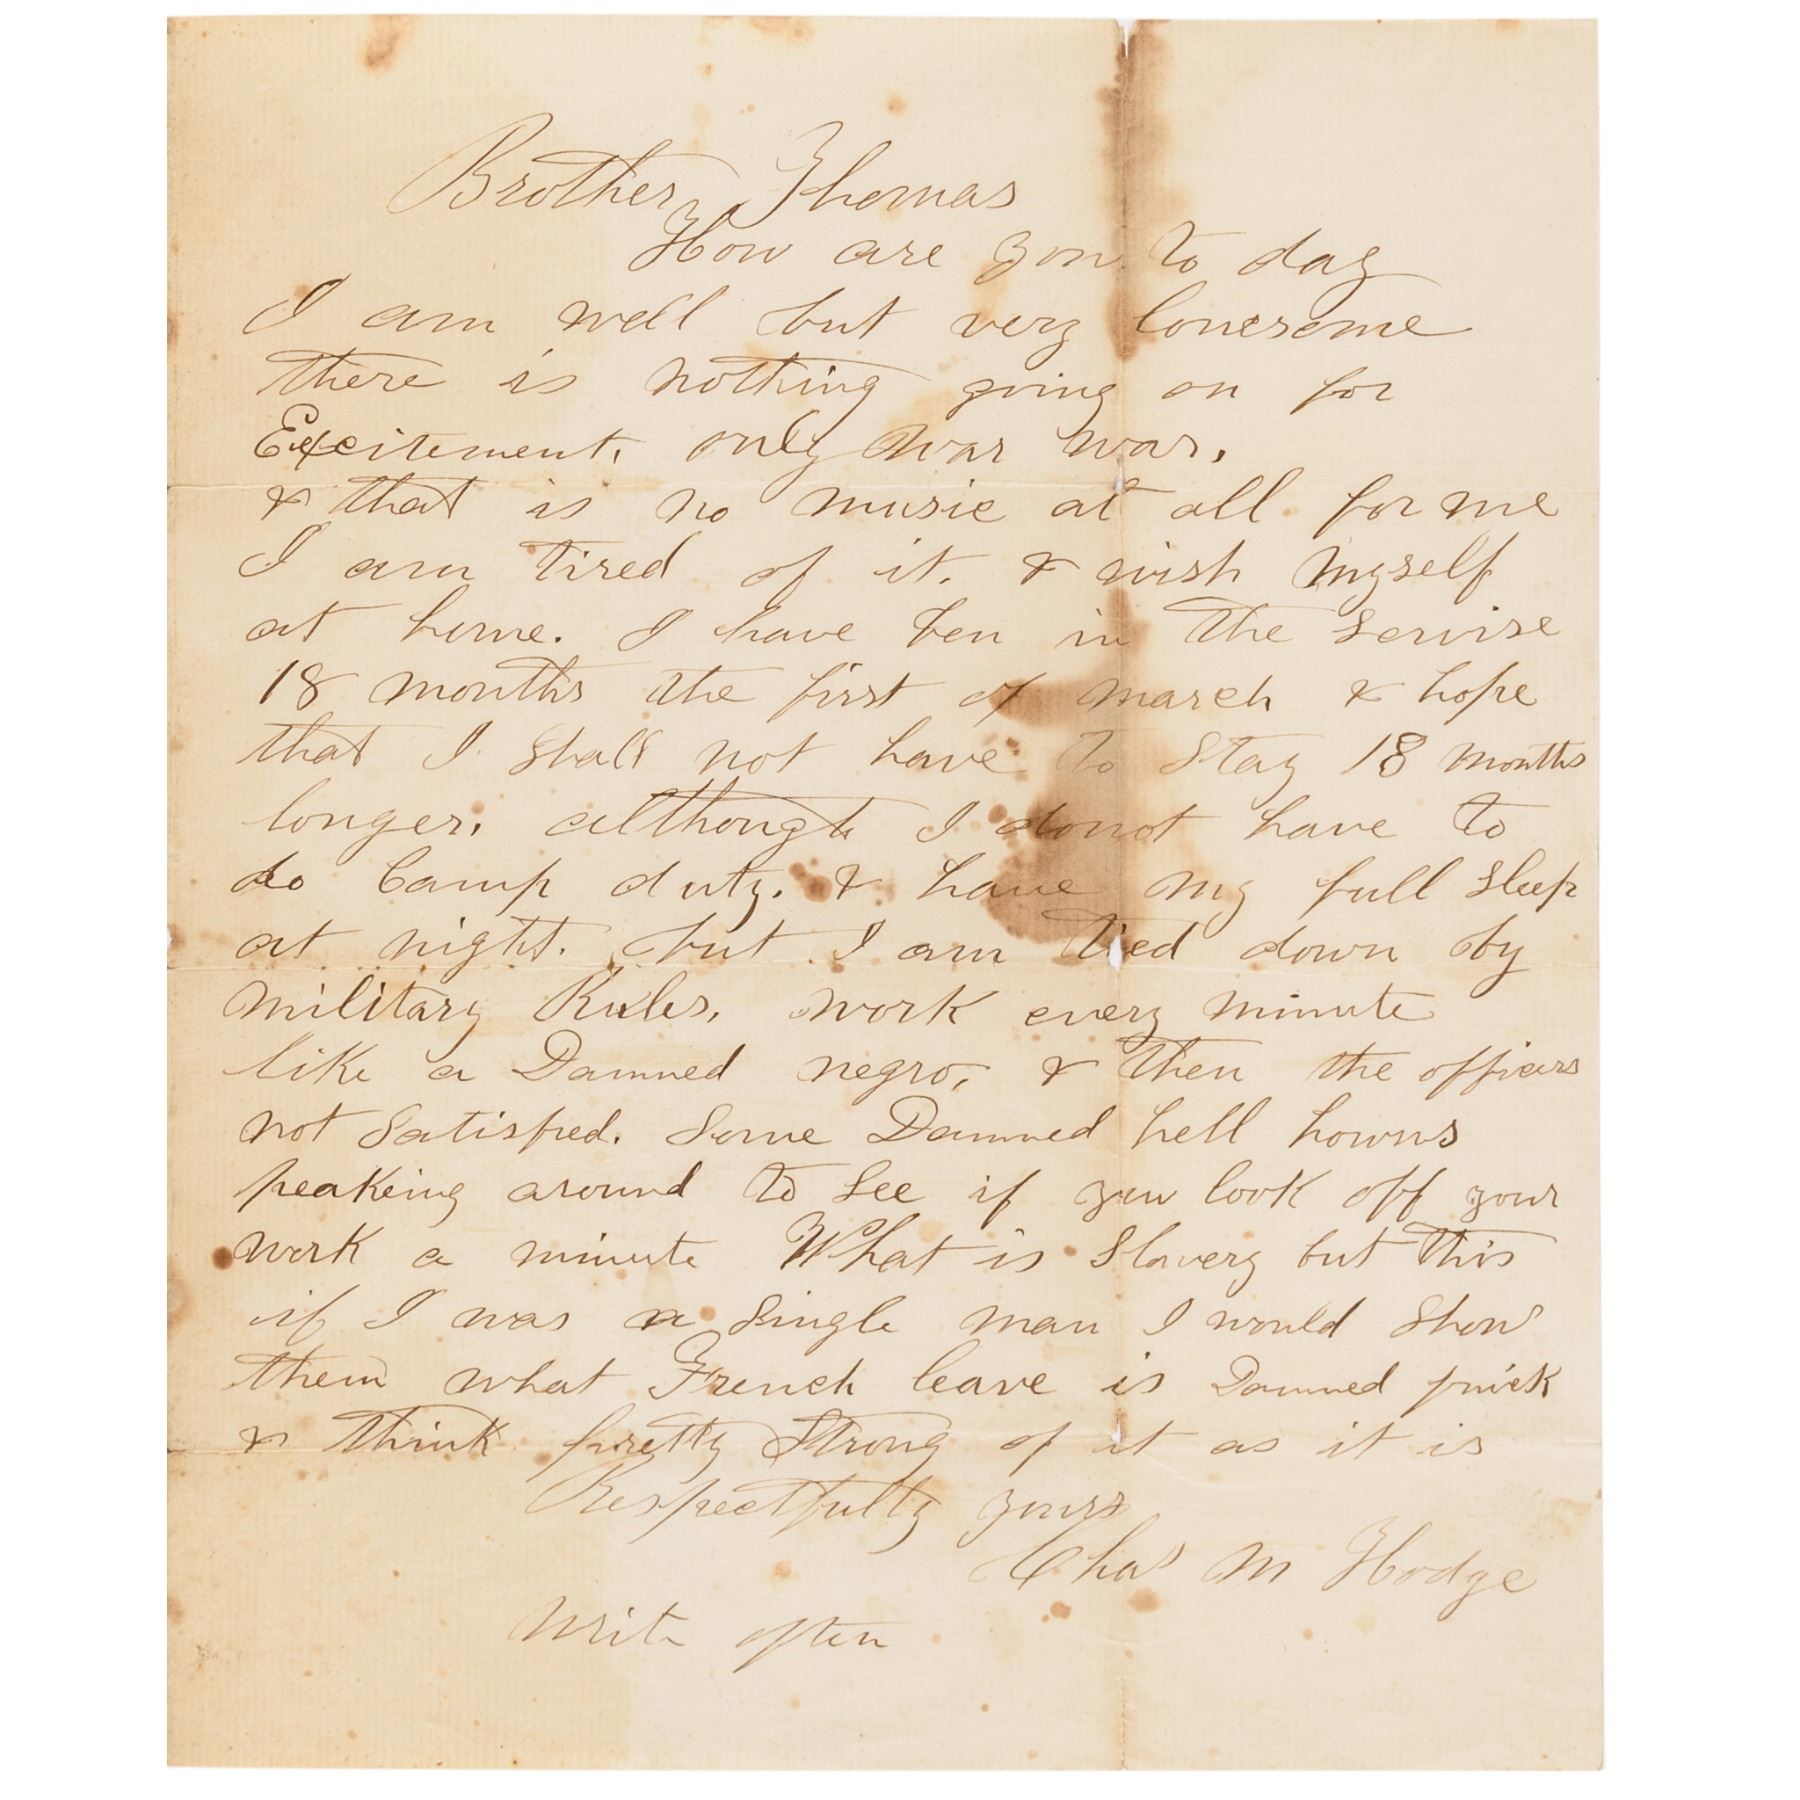 Brother Thomas
How are you to day
I am well but very lonesome
there is nothing going on for
Excitement, only war war,
& that is no music at all for me
I am tired of it. & wish myself
at home. I have ben in the servise
18 months the first of march & hope
that I shall not have to stay 18 months
longer, although I donot have to
do Camp duty. & have my full sleep
at night. but I am tied down by
military Rules, work every minute
like a Damned negro, & then the officers
not satisfied. some Damned hell howns
peakeing around to see if you look off your
work a minute What is slavery but this
if I was a single man I would show
them what French leave is Damned quick
& think pretty strong of it as it is
Respectfully yours
Chas M Hodge
write often